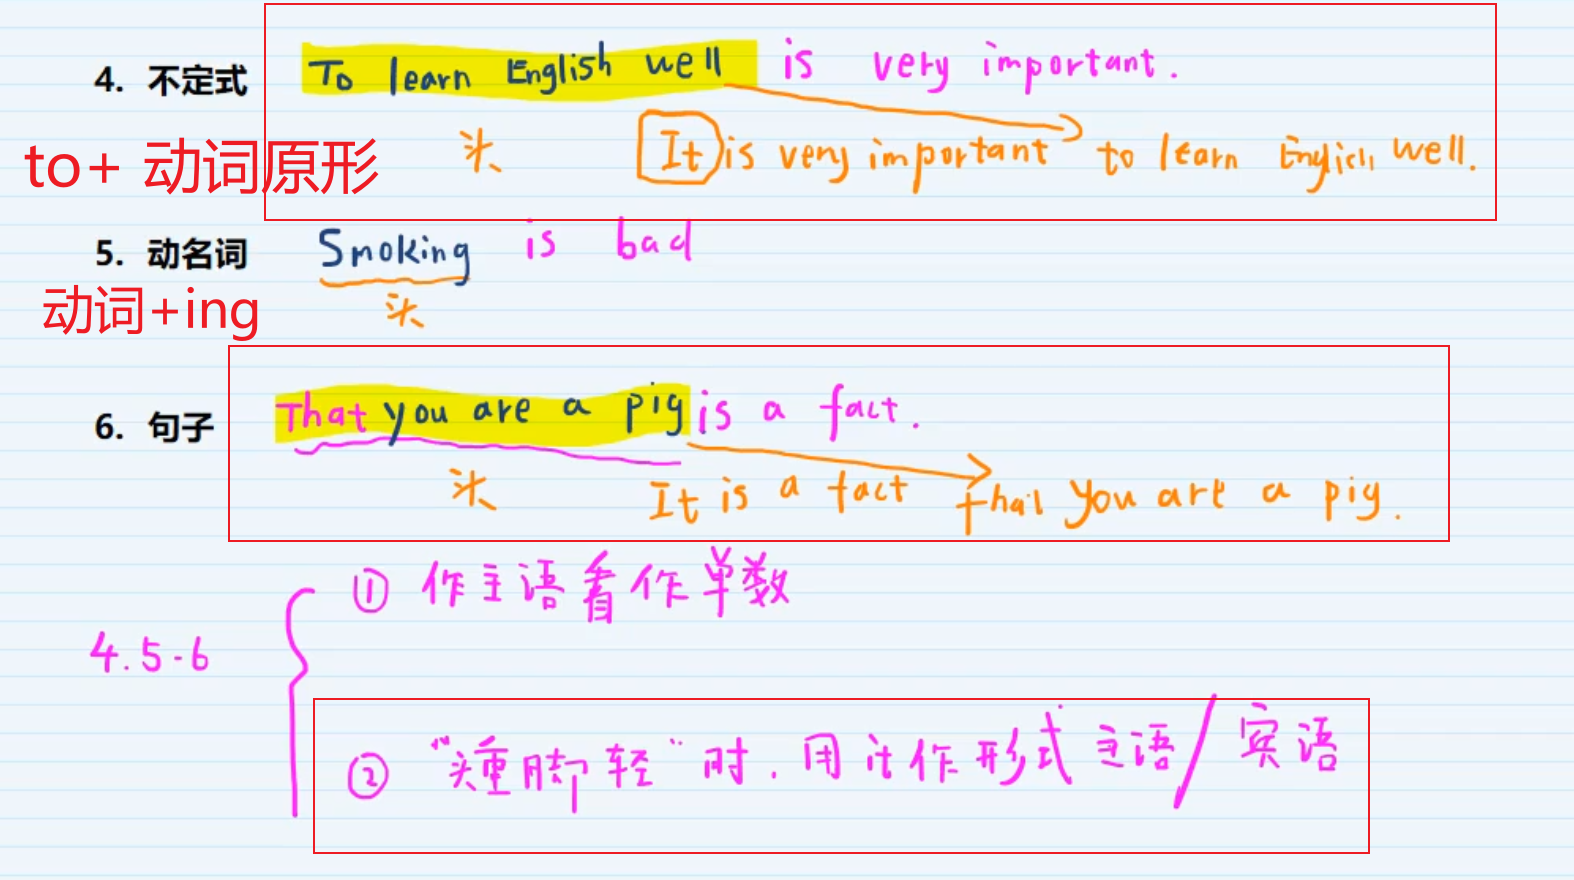 4. 不定式 To learn English well is very important.
头 It is very important to learn English well.
to+ 动词原形
5. 动名词 Smoking is bad
动词+ing 头
6. 句子 That you are a pig is a fact.
头 It is a fact that you are a pig.
4.5-6
① 作主语看作单数
② “头重脚轻”时.用it作形式主语/宾语